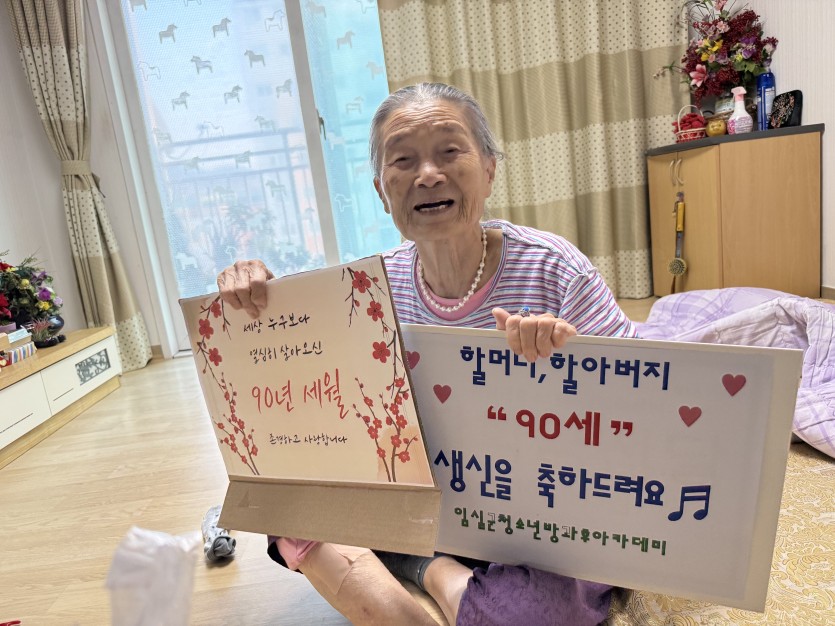 세상 누구보다
열심히 살아오신
90년 세월
존경하고 사랑합니다
할머니, 할아버지
“90세”
생신을 축하드려요
임실군청소년방과후아카데미